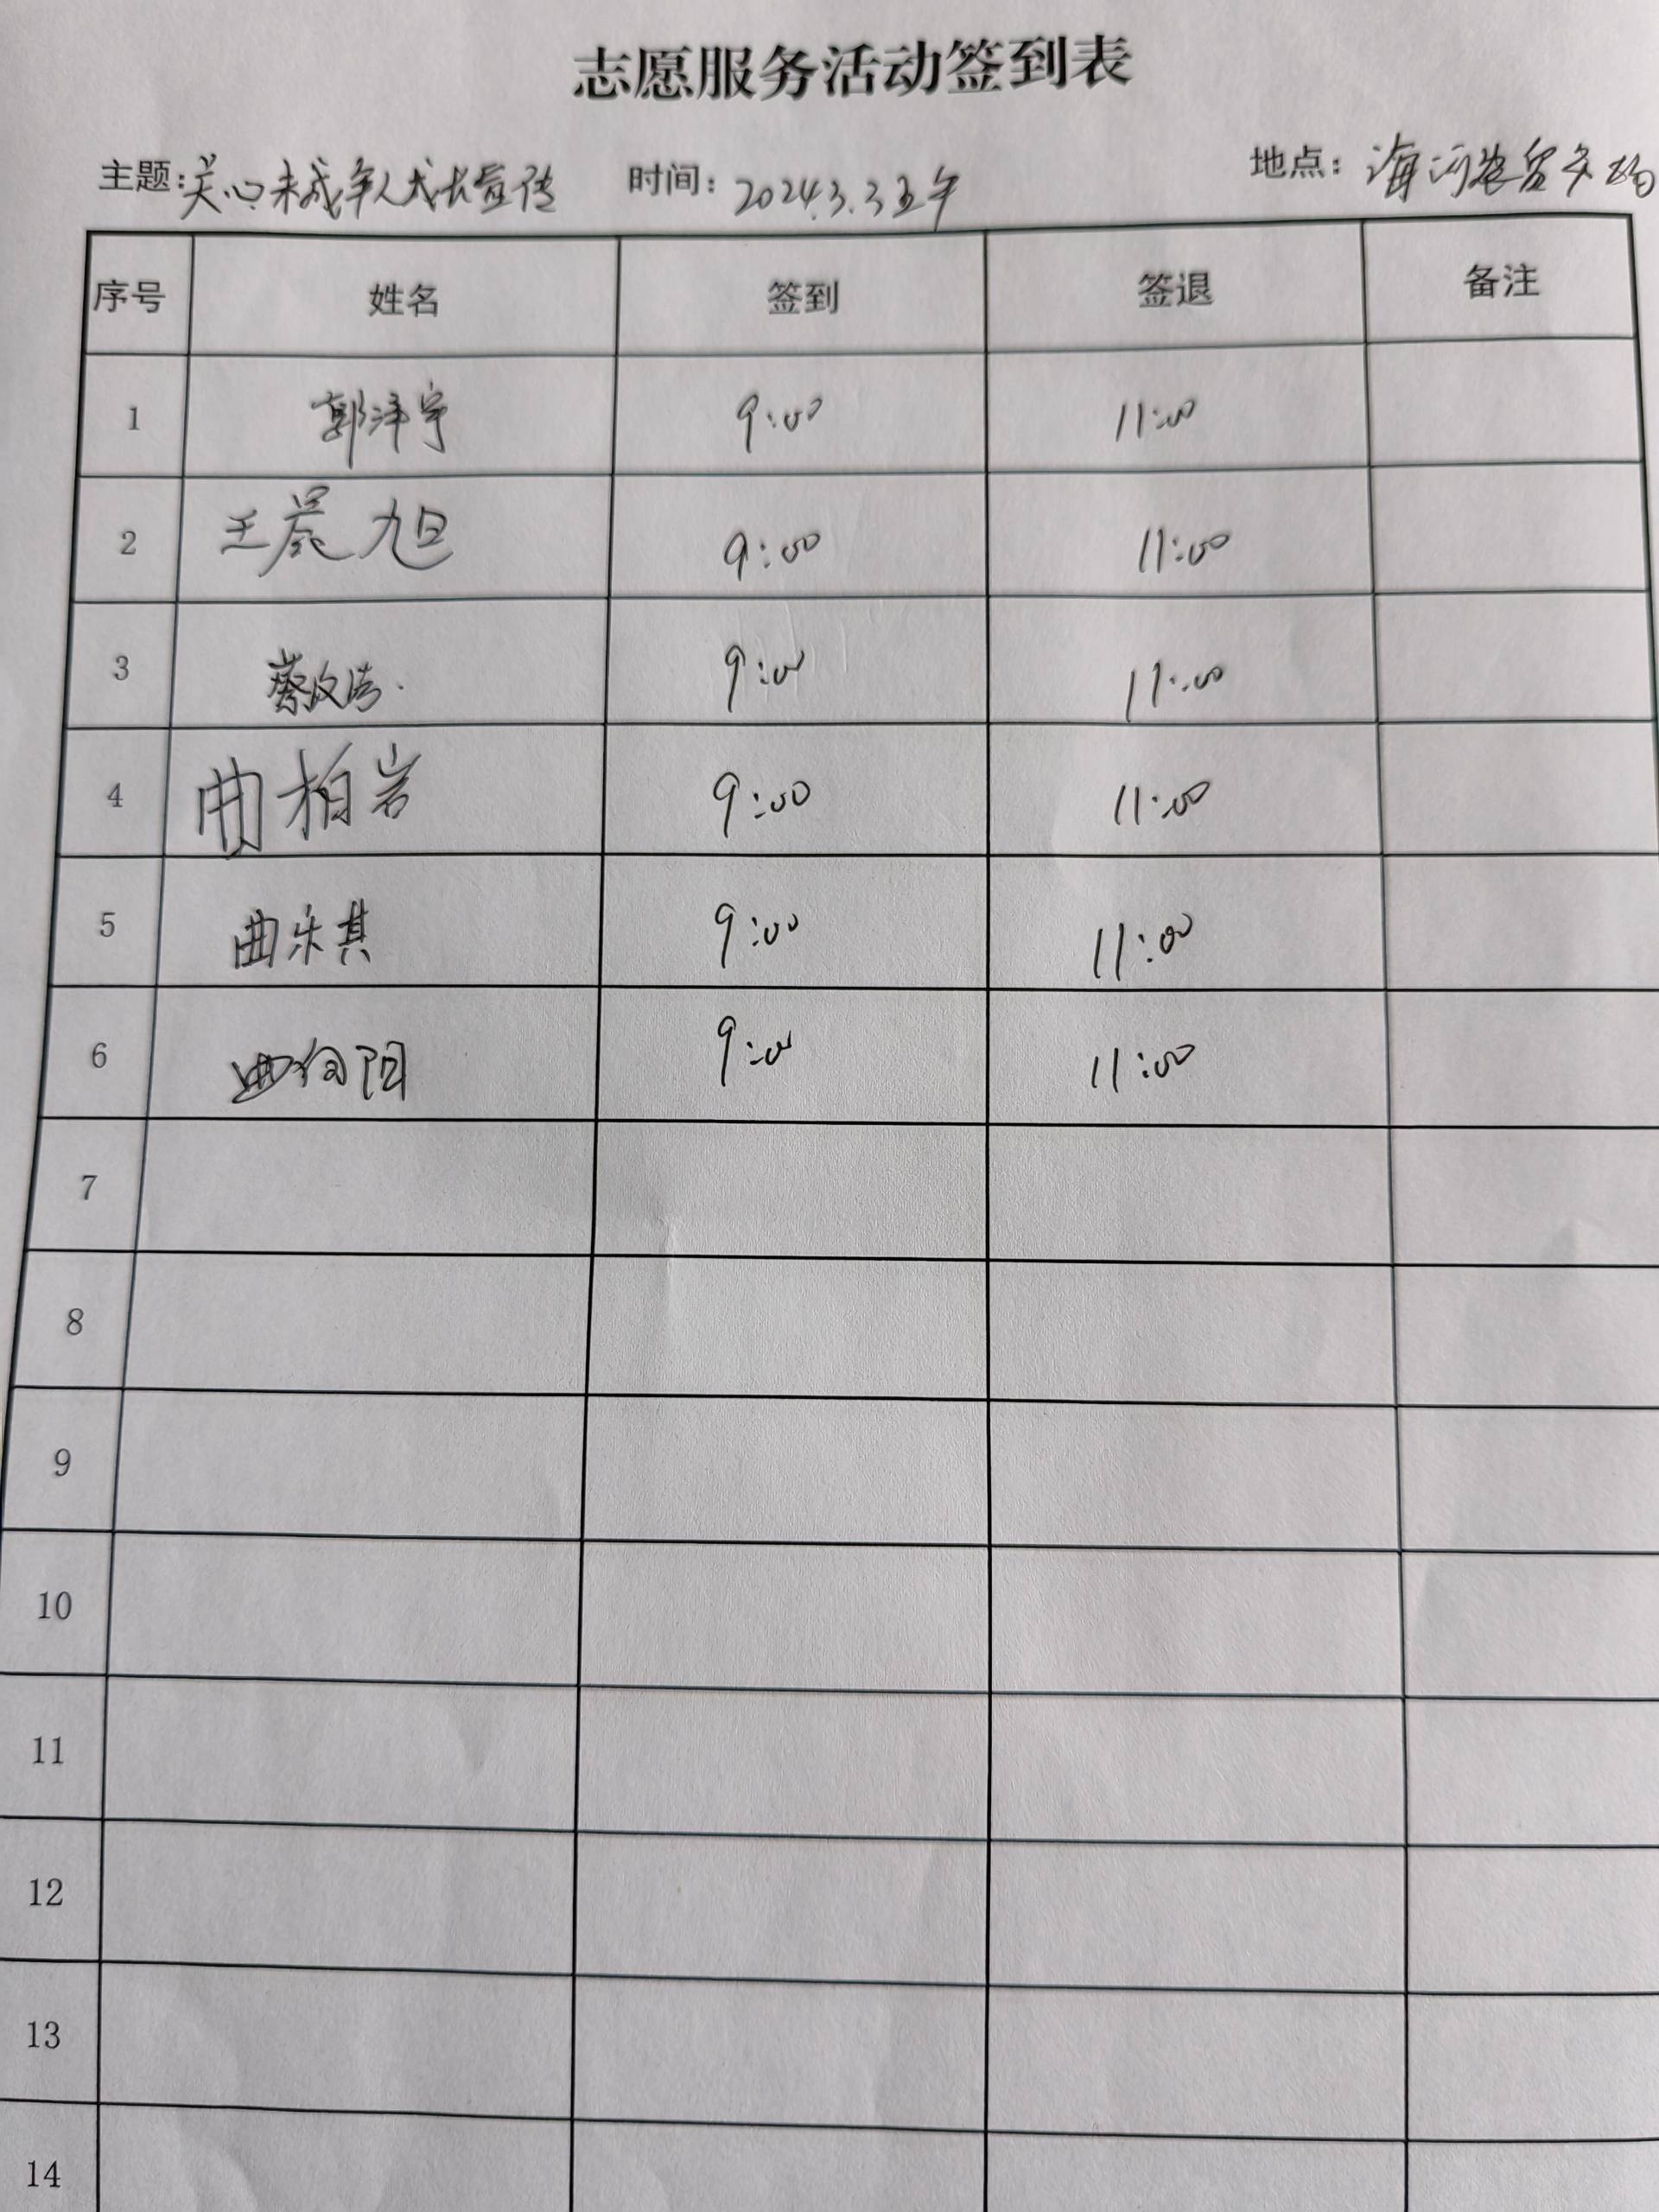 志愿服务活动签到表
主题:关心未成年人成长宣传 时间:2024.3.3上午 地点:海河农贸市场
序号 姓名 签到 签退 备注
1 郭泽宇 9:00 11:00
2 王晨旭 9:00 11:00
3 蔡文浩 9:00 11:00
4 曲柏岩 9:00 11:00
5 曲乐其 9:00 11:00
6 曲向阳 9:00 11:00
7
8
9
10
11
12
13
14